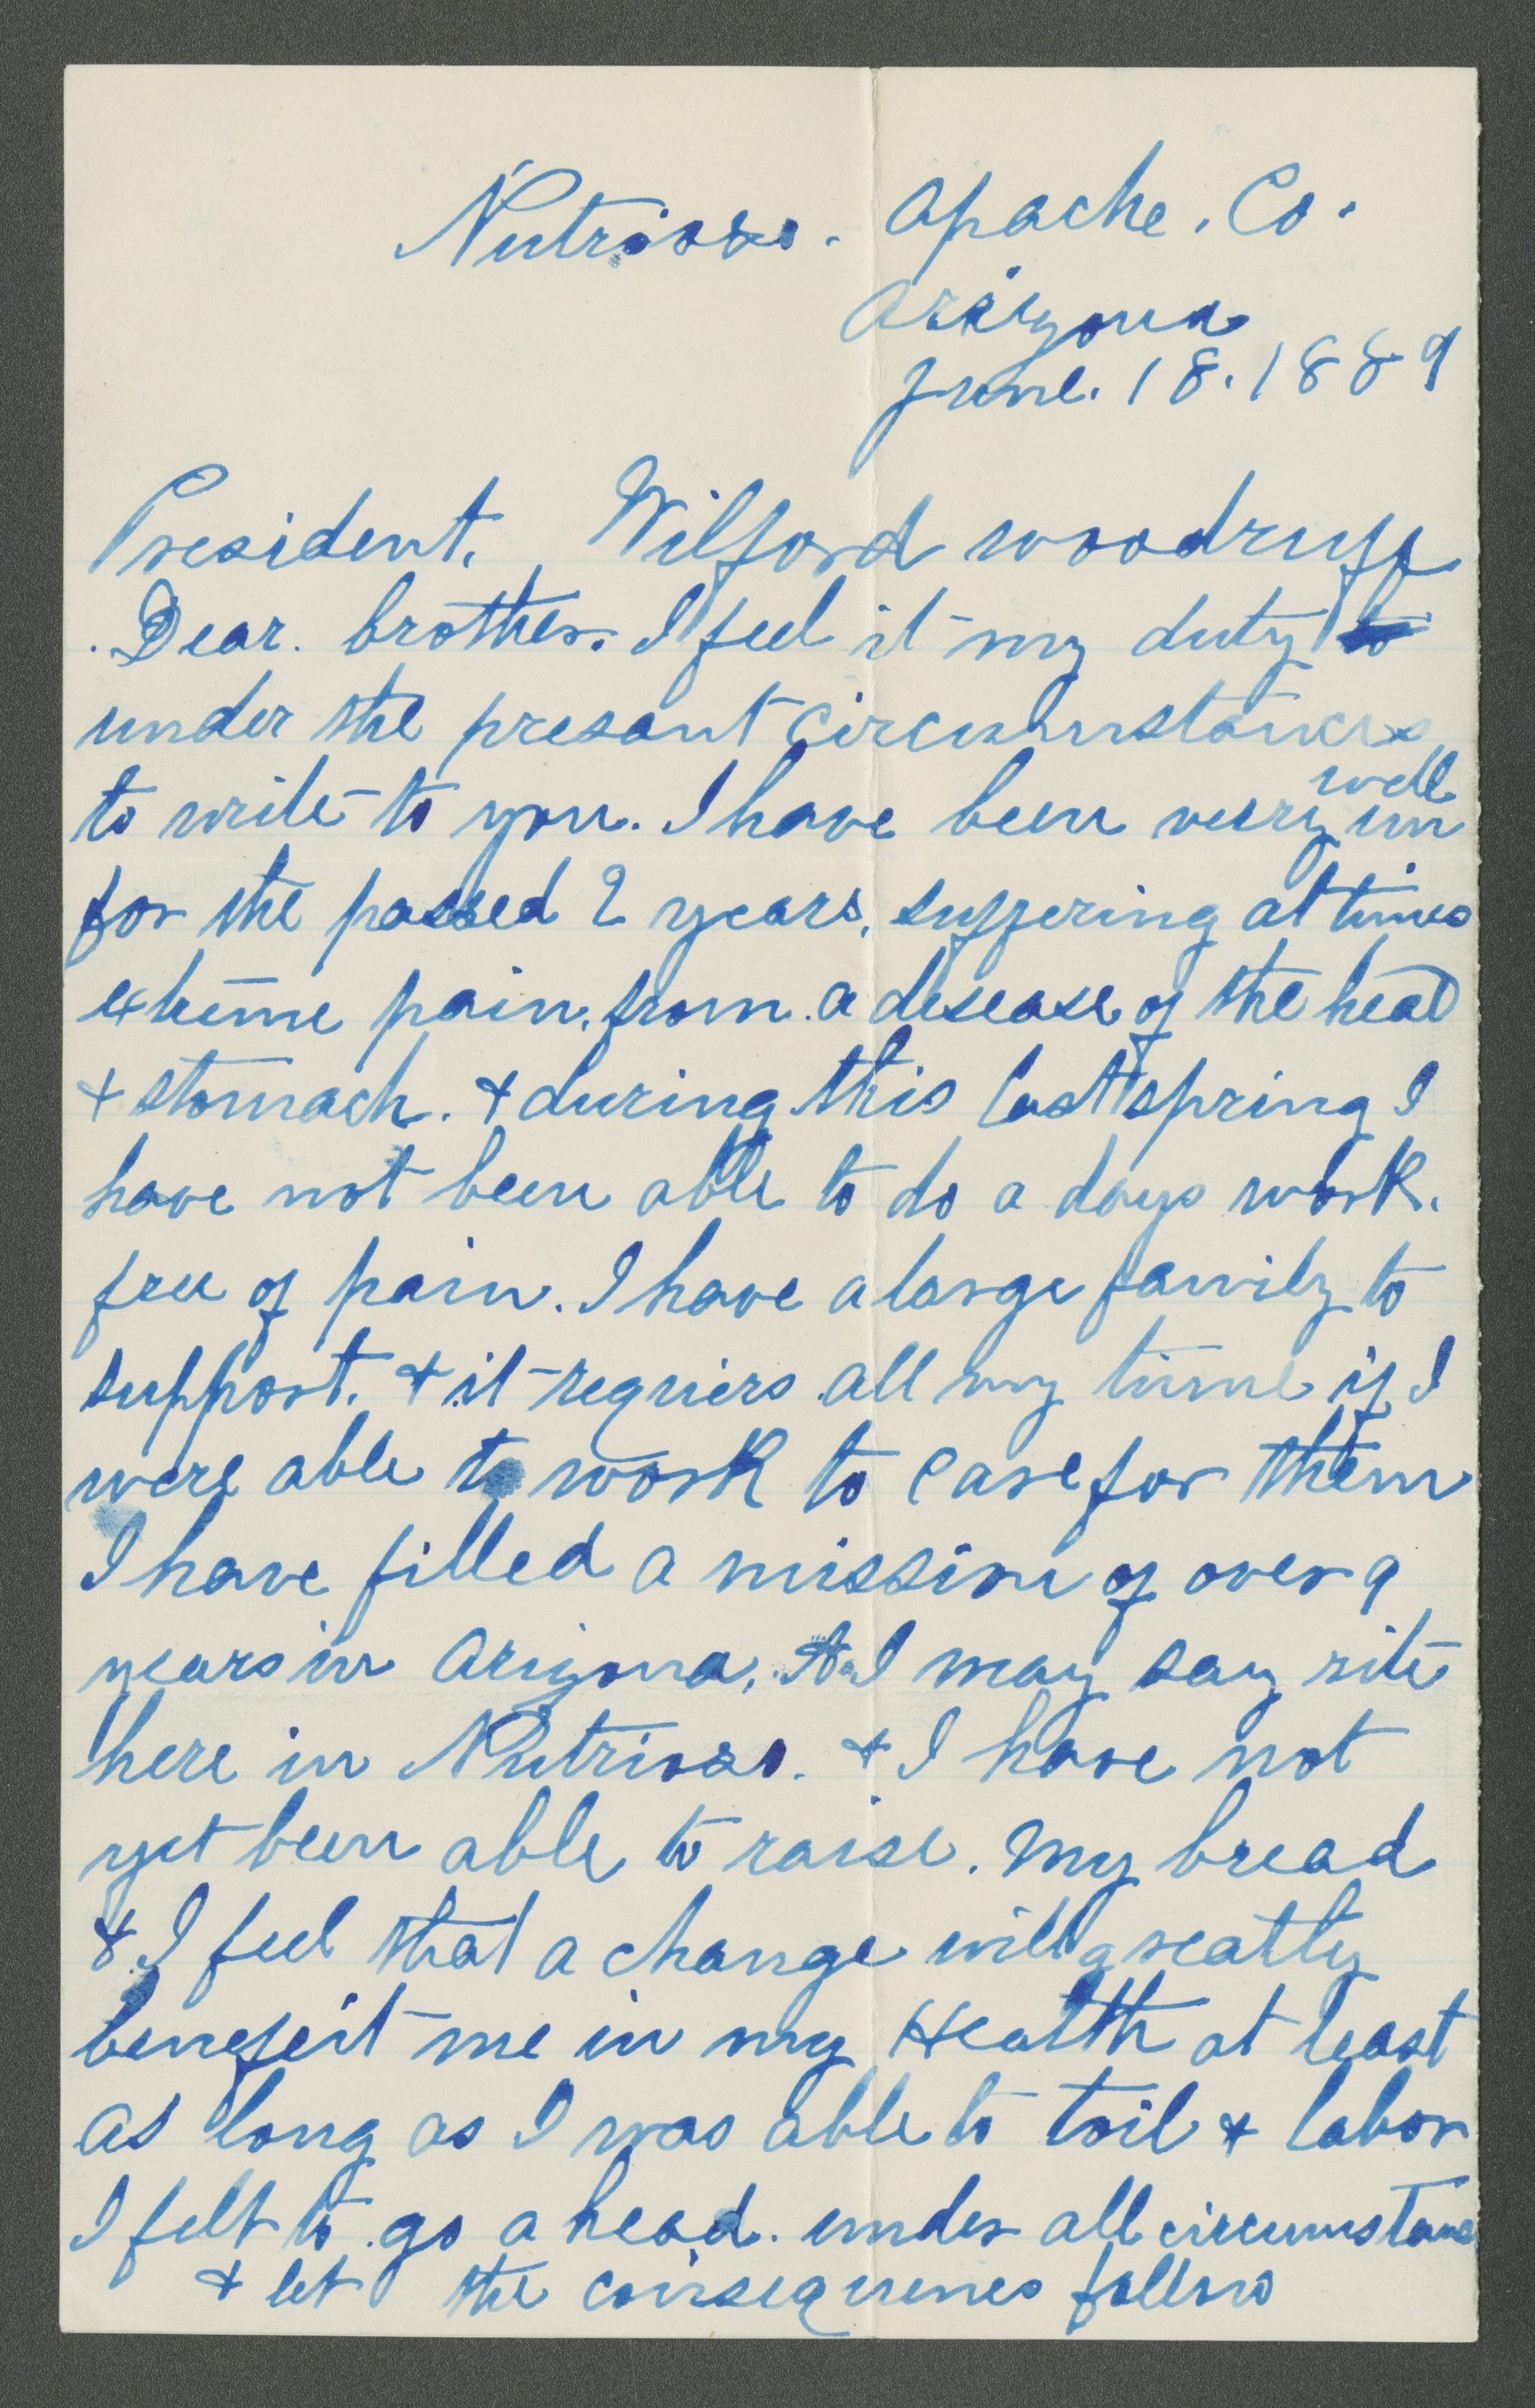 Nutrioso. Apache. Co.
Arizona
June. 18. 1889
President. Wilford woodruff
.Dear. brother. I feel it my duty to
under the presant circumstances
to write to you. I have been veery un well
for the passed 2 years, suffering at times
extreme pain. from. a desease of the head
& stomach. & during this last spring I
have not been able to do a days work.
free of pain. I have a large family to
support. & it requiers all my time if I
were able to work to care for them
I have filled a mission of over 9
years in Arizona, I may say rite
here in Nutrioso. & I have not
yet been able to raise. my bread
& I feel that a change will greatly
benefeit me in my Health at least
as long as I was able to toil & labor
I felt to go a head. under all circumstance
& let the consequenes follow